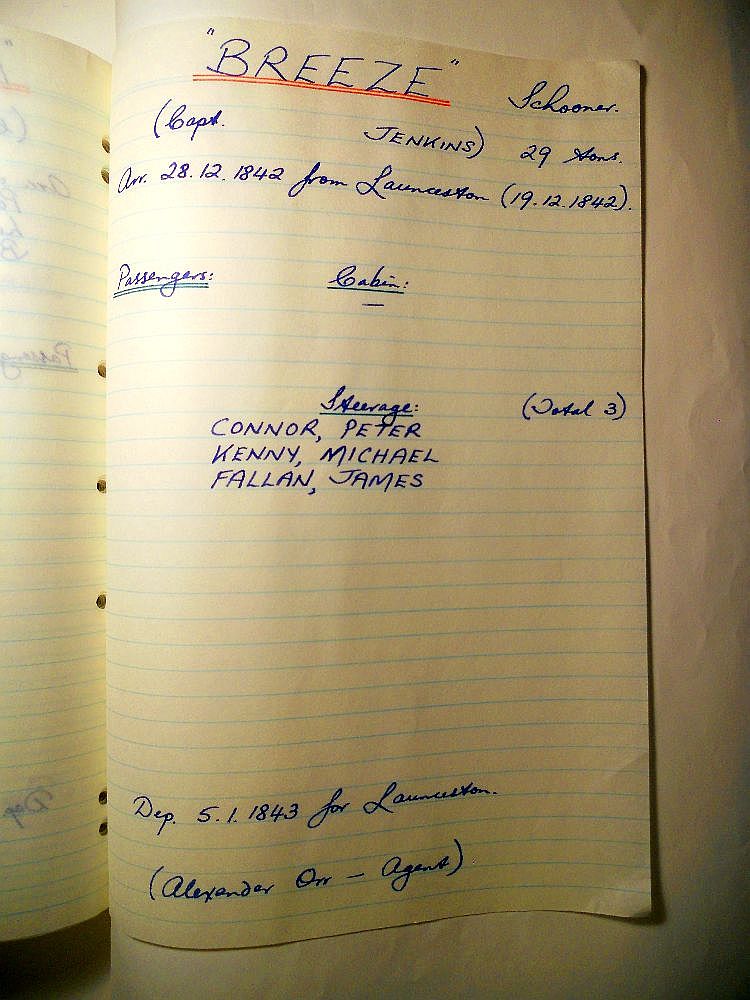 "BREEZE"
Schooner.
(Capt. JENKINS) 29 tons.
Arr. 28.12.1842 from Launceston (19.12.1842).
Passengers: Cabin:
—
Steerage: (Total 3)
CONNOR, PETER
KENNY, MICHAEL
FALLAN, JAMES
Dep. 5.1.1843 for Launceston.
(Alexander Orr — Agent)